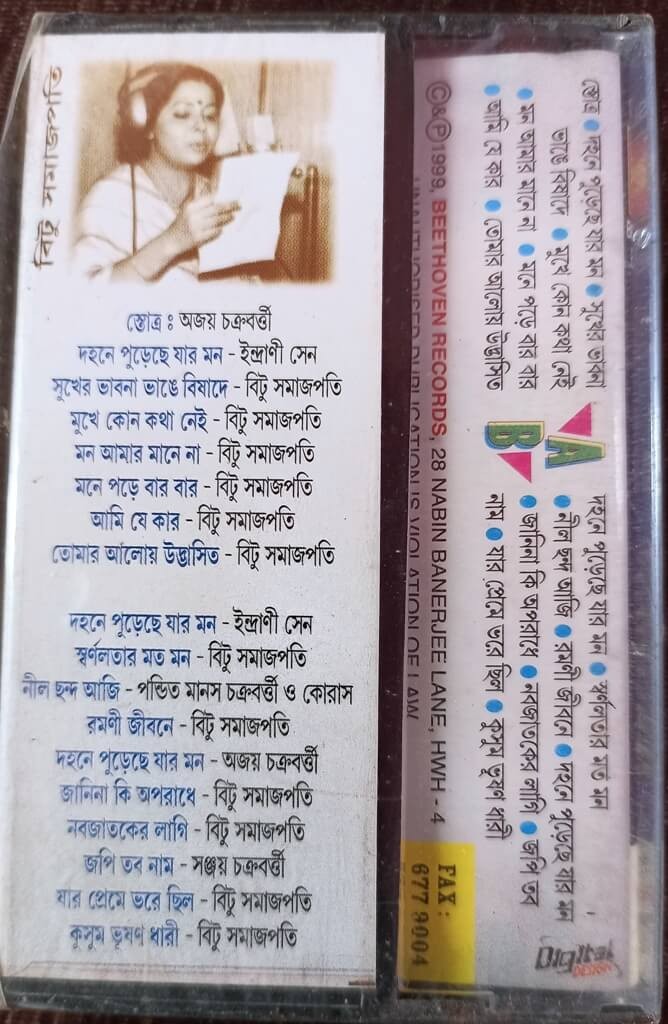 বিটু সমাজপতি
স্তোত্র : অজয় চক্রবর্ত্তী
দহনে পুড়েছে যার মন - ইন্দ্রাণী সেন
সুখের ভাবনা ভাঙে বিষাদে - বিটু সমাজপতি
মুখে কোন কথা নেই - বিটু সমাজপতি
মন আমার মানে না - বিটু সমাজপতি
মনে পড়ে বার বার - বিটু সমাজপতি
আমি যে কার - বিটু সমাজপতি
তোমার আলোয় উদ্ভাসিত - বিটু সমাজপতি
দহনে পুড়েছে যার মন - ইন্দ্রাণী সেন
স্বর্ণলতার মত মন - বিটু সমাজপতি
নীল ছন্দ আজি - পন্ডিত মানস চক্রবর্ত্তী ও কোরাস
রমণী জীবনে - বিটু সমাজপতি
দহনে পুড়েছে যার মন - অজয় চক্রবর্ত্তী
জানিনা কি অপরাধে - বিটু সমাজপতি
নবজাতকের লাগি - বিটু সমাজপতি
জপি তব নাম - সঞ্জয় চক্রবর্ত্তী
যার প্রেমে ভরে ছিল - বিটু সমাজপতি
কুসুম ভূষণ ধারী - বিটু সমাজপতি
স্তোত্র • দহনে পুড়েছে যার মন • সুখের ভাবনা
ভাঙে বিষাদে • মুখে কোন কথা নেই
• মন আমার মানে না • মনে পড়ে বার বার
• আমি যে কার • তোমার আলোয় উদ্ভাসিত
A
B
দহনে পুড়েছে যার মন • স্বর্ণলতার মত মন
• নীল ছন্দ আজি • রমণী জীবনে • দহনে পুড়েছে যার মন
• জানিনা কি অপরাধে • নবজাতকের লাগি • জপি তব
নাম • যার প্রেমে ভরে ছিল • কুসুম ভূষণ ধারী
©&℗ 1999, BEETHOVEN RECORDS, 28 NABIN BANERJEE LANE, HWH - 4
UNAUTHORISED PUBLICATION IS VIOLATION OF LAW
FAX :
677 9004
Digital
DESIGN